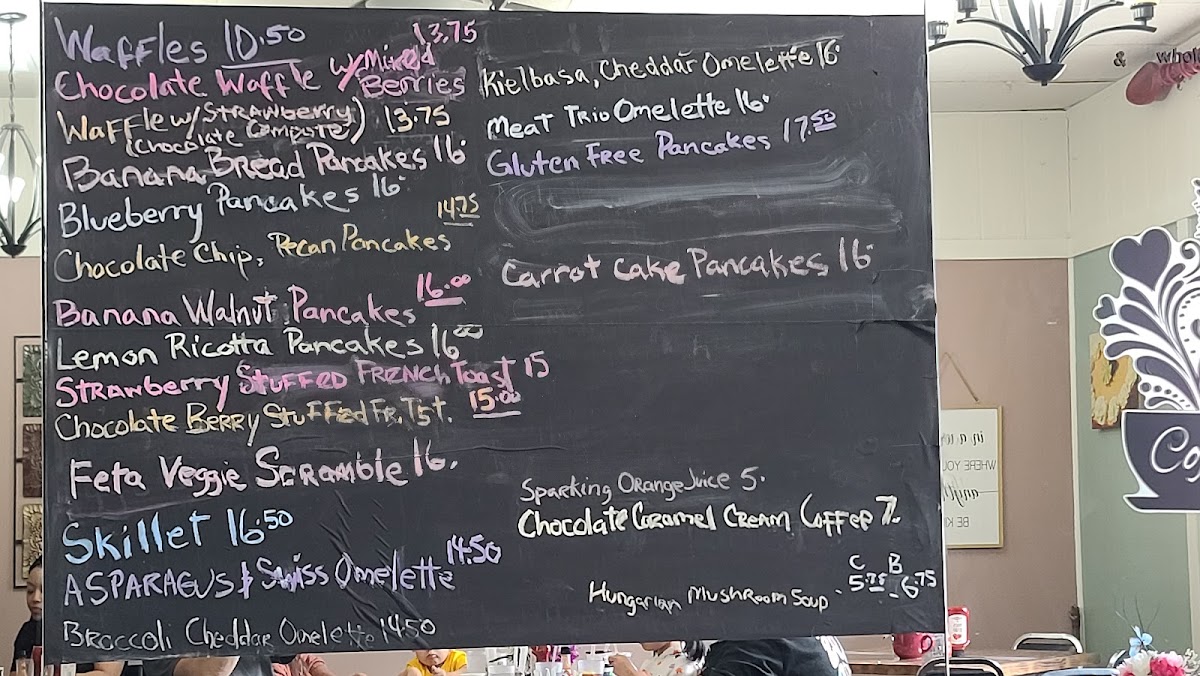 Waffles 10.50
Chocolate Waffle w/Mixed Berries 13.75
Waffle w/ STRAWBERRY 13.75
(Chocolate Compote)
Banana Bread Pancakes 16
Blueberry Pancakes 16.
Chocolate Chip, Pecan Pancakes 14.75
Banana Walnut Pancakes 16.00
Lemon Ricotta Pancakes 16.00
STRAWberry STUFFED FRENCH Toast 15
Chocolate BERRY Stuffed Fr. Tst. 15.00
Feta Veggie Scramble 16.
Skillet 16.50
ASPARAGUS & Swiss Omelette 14.50
Broccoli Cheddar Omelette 14.50
Kielbasa, Cheddar Omelette 16.
Meat Trio Omelette 16.
Gluten Free Pancakes 17.50
Carrot Cake Pancakes 16.
Sparking Orange Juice 5.
Chocolate Caramel Cream Coffee 7.
C B
Hungarian Mushroom Soup - 5.75 - 6.75
& whol
Co
in a
WHERE YOU
any
BE KI